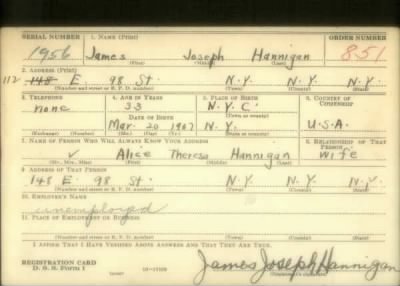 SERIAL NUMBER 1. NAME (Print) ORDER NUMBER
1956 James Joseph Hannigan 851
(First) (Middle) (Last)
2. ADDRESS (Print)
112 148 E. 98 St. N.Y. N.Y. N.Y.
(Number and street or R. F. D. number) (Town) (County) (State)
3. TELEPHONE 4. AGE IN YEARS 5. PLACE OF BIRTH 6. COUNTRY OF CITIZENSHIP
none 33 N.Y.C.
DATE OF BIRTH (Town or county)
Mar. 20 1907 N.Y. U.S.A.
(Exchange) (Number) (Mo.) (Day) (Yr.) (State or country)
7. NAME OF PERSON WHO WILL ALWAYS KNOW YOUR ADDRESS 8. RELATIONSHIP OF THAT PERSON
Alice Theresa Hannigan wife
(Mr., Mrs., Miss) (First) (Middle) (Last)
9. ADDRESS OF THAT PERSON
148 E. 98 St. N.Y. N.Y. N.Y.
(Number and street or R. F. D. number) (Town) (County) (State)
10. EMPLOYER'S NAME
unemployed
11. PLACE OF EMPLOYMENT OR BUSINESS
(Number and street or R. F. D. number) (Town) (County) (State)
I AFFIRM THAT I HAVE VERIFIED ABOVE ANSWERS AND THAT THEY ARE TRUE.
REGISTRATION CARD
D. S. S. Form 1
James Joseph Hannigan